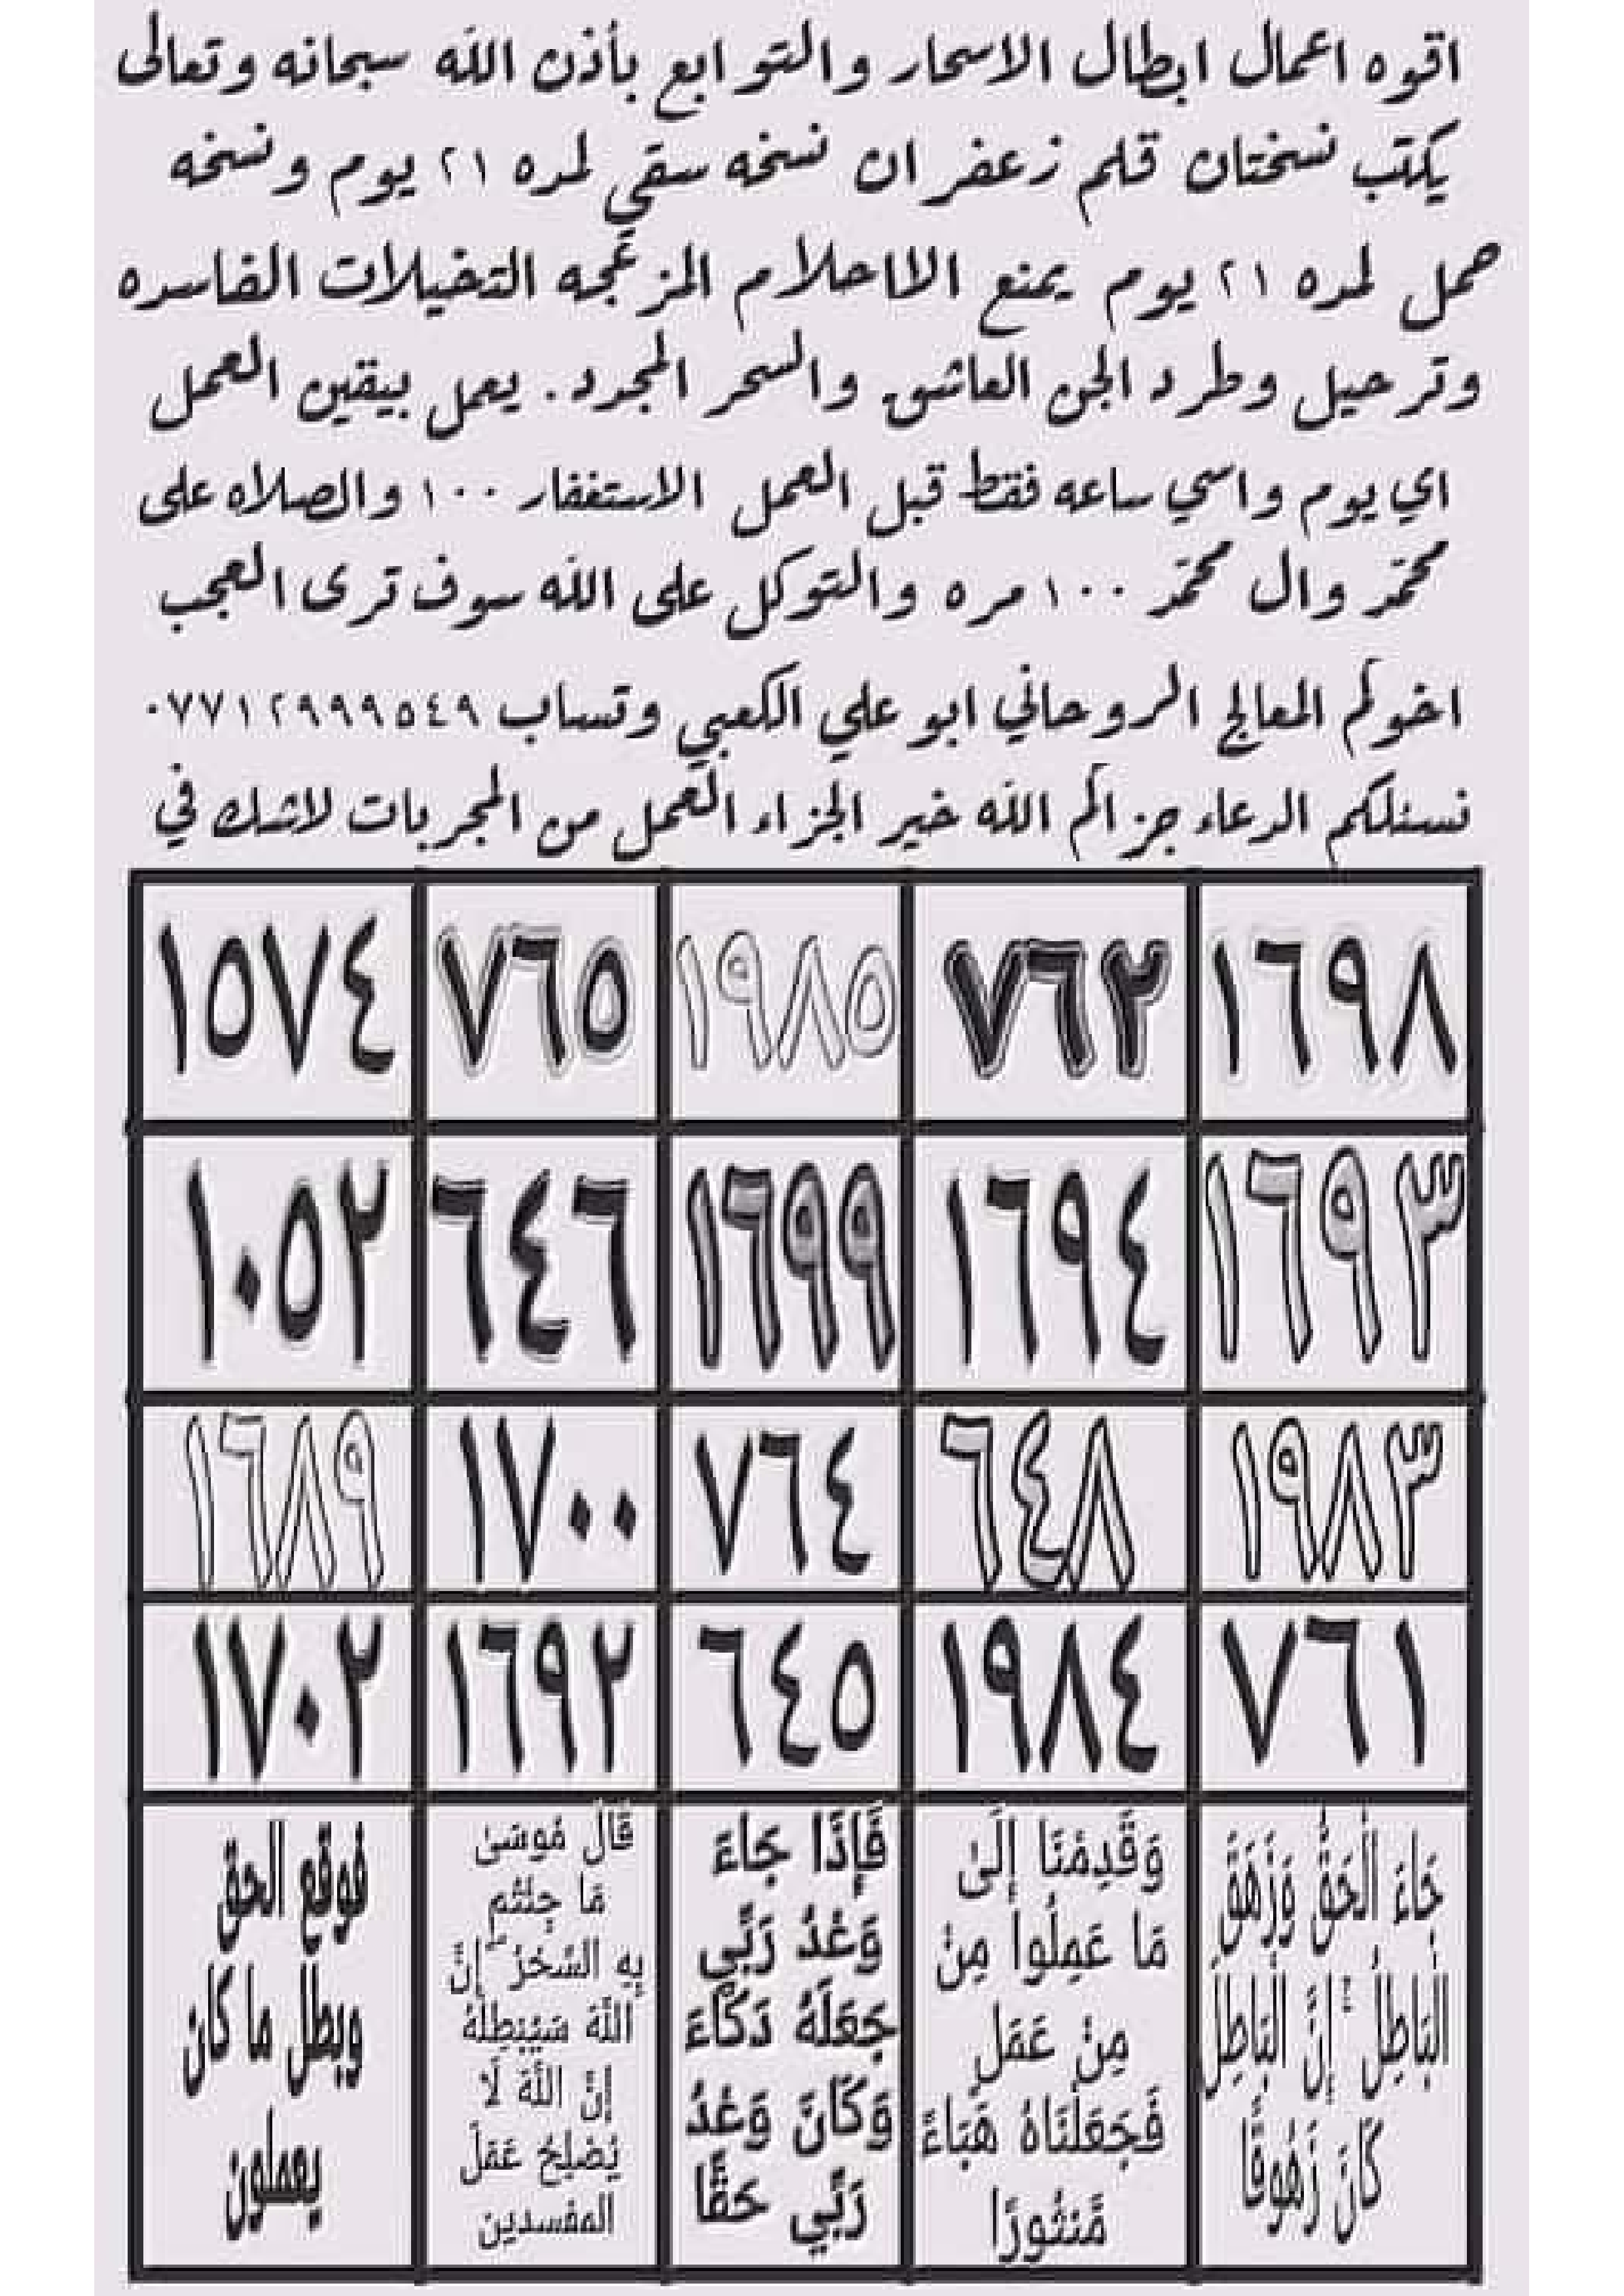 اقوه اعمال ابطال الاسحار والتوابع بأذن الله سبحانه وتعالى
يكتب نسختان قلم زعفران نسخه سقي لمده ٢١ يوم ونسخه
حمل لمده ٢١ يوم يمنع الااحلام المزعجه التخيلات الفاسده
وترحيل وطرد الجن العاشق والسحر المجدد. يعمل بيقين العمل
اي يوم واسي ساعه فقط قبل العمل الاستغفار ١٠٠ والصلاه على
محمد وال محمد ١٠٠ مره والتوكل على الله سوف ترى العجب
اخوكم المعالج الروحاني ابو علي الكعبي وتساب ٠٧٧١٢٩٩٩٥٤٩
نسئلكم الدعاء جزاكم الله خير الجزاء العمل من المجربات لاشك في
١٦٩٨ ٧٦٢ ١٩٨٥ ٧٦٥ ١٥٧٤
١٦٩٣ ١٦٩٤ ١٦٩٩ ٦٤٦ ١٠٥٢
١٩٨٣ ٦٤٨ ٧٦٤ ١٧٠٠ ١٦٨٩
٧٦١ ١٩٨٤ ٦٤٥ ١٦٩٢ ١٧٠٢
جَاءَ الْحَقُّ وَزَهَقَ
الْبَاطِلُ ۚ إِنَّ الْبَاطِلَ
كَانَ زَهُوقًا
وَقَدِمْنَا إِلَىٰ
مَا عَمِلُوا مِنْ
مِنْ عَمَلٍ
فَجَعَلْنَاهُ هَبَاءً
مَّنثُورًا
فَإِذَا جَاءَ
وَعْدُ رَبِّي
جَعَلَهُ دَكَّاءَ
وَكَانَ وَعْدُ
رَبِّي حَقًّا
قَالَ مُوسَىٰ
مَا جِئْتُم
بِهِ السِّحْرُ ۖ إِنَّ
اللَّهَ سَيُبْطِلُهُ
إِنَّ اللَّهَ لَا
يُصْلِحُ عَمَلَ
المفسدين
فوقع الحق
وبطل ما كان
يعملون